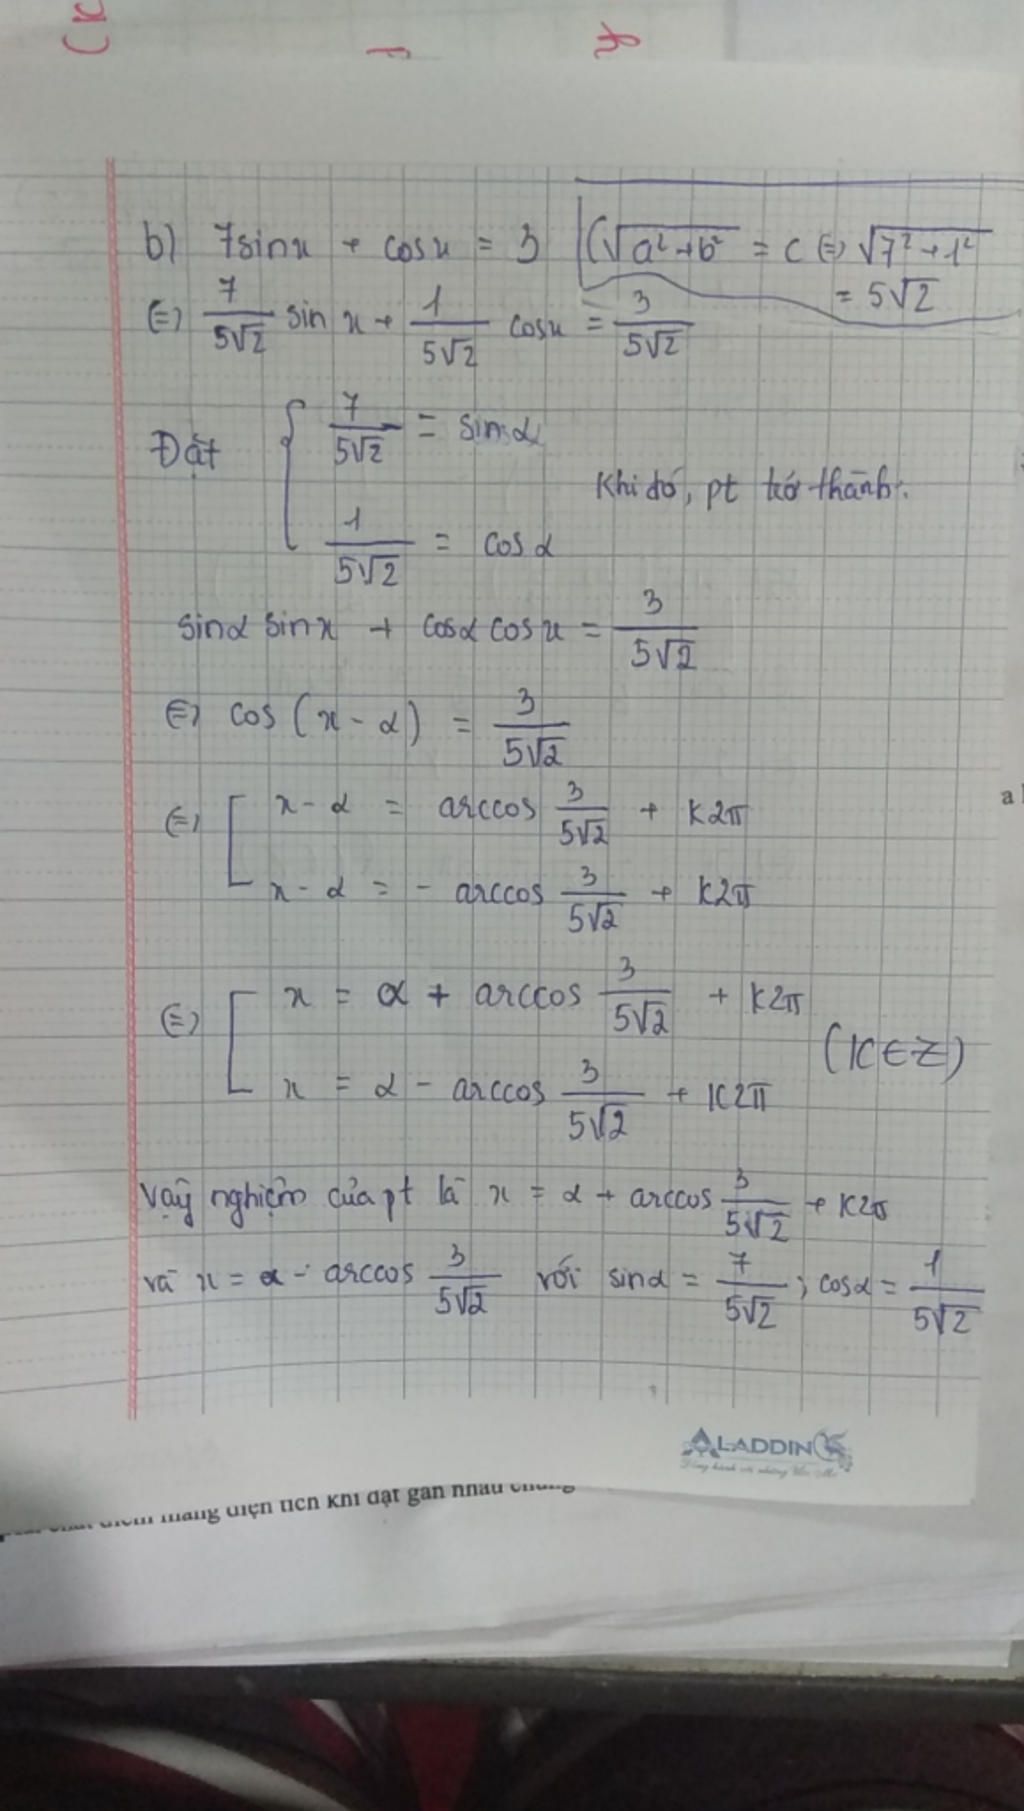 b) 7sinx + cosx = 3 (√a²+b² = c ⇔ √7²+1²
= 5√2
⇔ 7/5√2 sin x + 1/5√2 cosx = 3/5√2
Đặt { 7/5√2 = sinα
Khi đó, pt trở thành:
1/5√2 = cosα
sinα sinx + cosα cosx = 3/5√2
⇔ cos(x-α) = 3/5√2
⇔ [ x-α = arccos 3/5√2 + K2π
x-α = - arccos 3/5√2 + K2π
⇔ [ x = α + arccos 3/5√2 + K2π
(K∈Z)
x = α - arccos 3/5√2 + K2π
Vậy nghiệm của pt là x = α + arccos 3/5√2 + K2π
và x = α - arccos 3/5√2 với sinα = 7/5√2 ; cosα = 1/5√2
ALADDIN
điểm mang điện tích khi đặt gần nhau